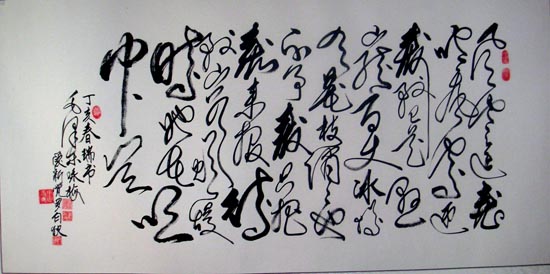 风雨送春
归飞雪迎
春到已是悬
崖百丈冰犹
有花枝俏俏也
不争春只把
春来报待
到山花烂漫
时她在丛
中笑
丁亥春瑞书
毛泽东咏梅